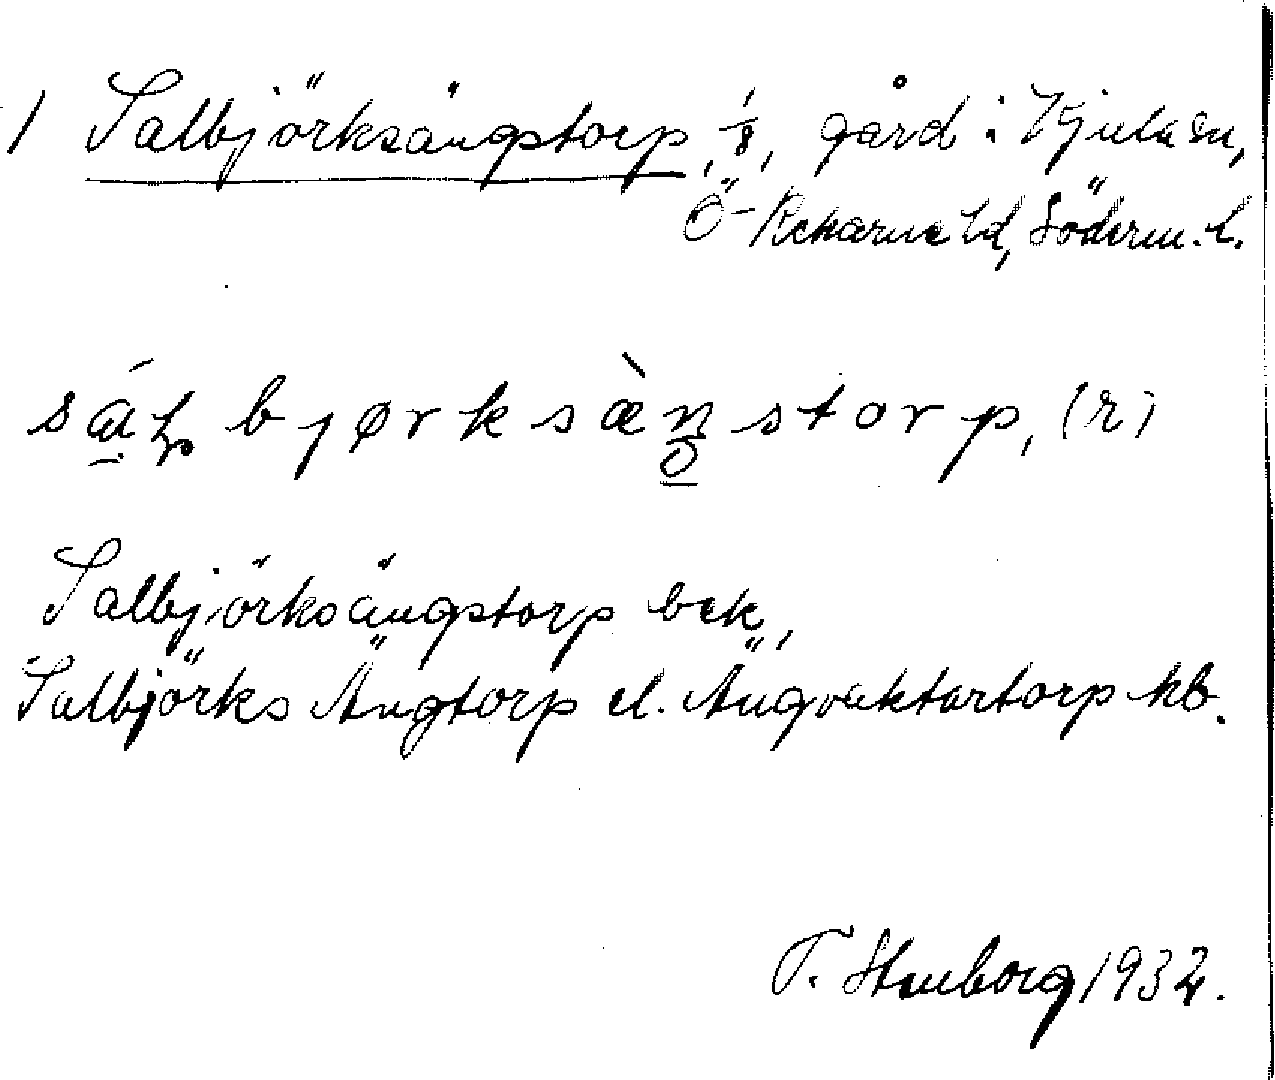 1 Salbjörksängstorp, 1/8, gård i Kjula sn,
Ö-Rekarne hd, Söderm. l.
Salbjörksängstorp bek,
Salbjörks Ängtorp el. Ängvaktartorp kb.
T. Stenborg 1932.